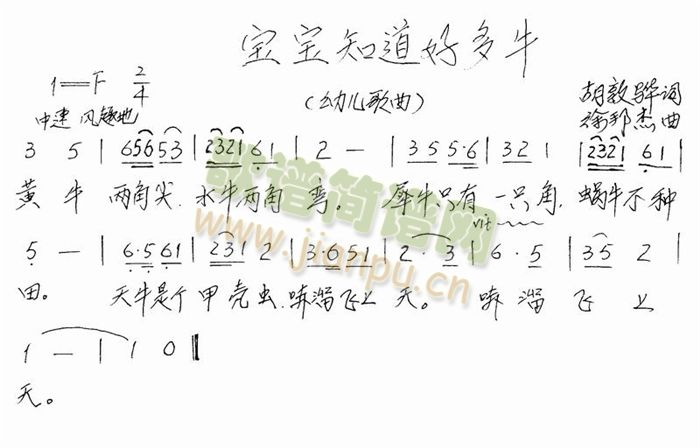 宝宝知道好多牛
(幼儿歌曲)
1=F 2/4
中速 风趣地
胡敦骅词
徐邦杰曲
3 5 | 6 5 6 5 3 | 2 3 2 1 6 1 | 2 — | 3 5 5·6 | 3 2 1 | 2 3 2 1 6 1 |
黄 牛 两角尖, 水牛两角 弯。 犀牛只有 一只角, 蜗牛不种
rit
5 — | 6·5 6 1 | 2 3 1 2 | 3·6 5 1 | 2·3 | 6·5 | 3 5 2 |
田。 天牛是个 甲壳虫, 哧溜飞上 天。 哧 溜 飞 上
1 — | 1 0 ‖
天。
歌谱简谱网
www.jianpu.cn